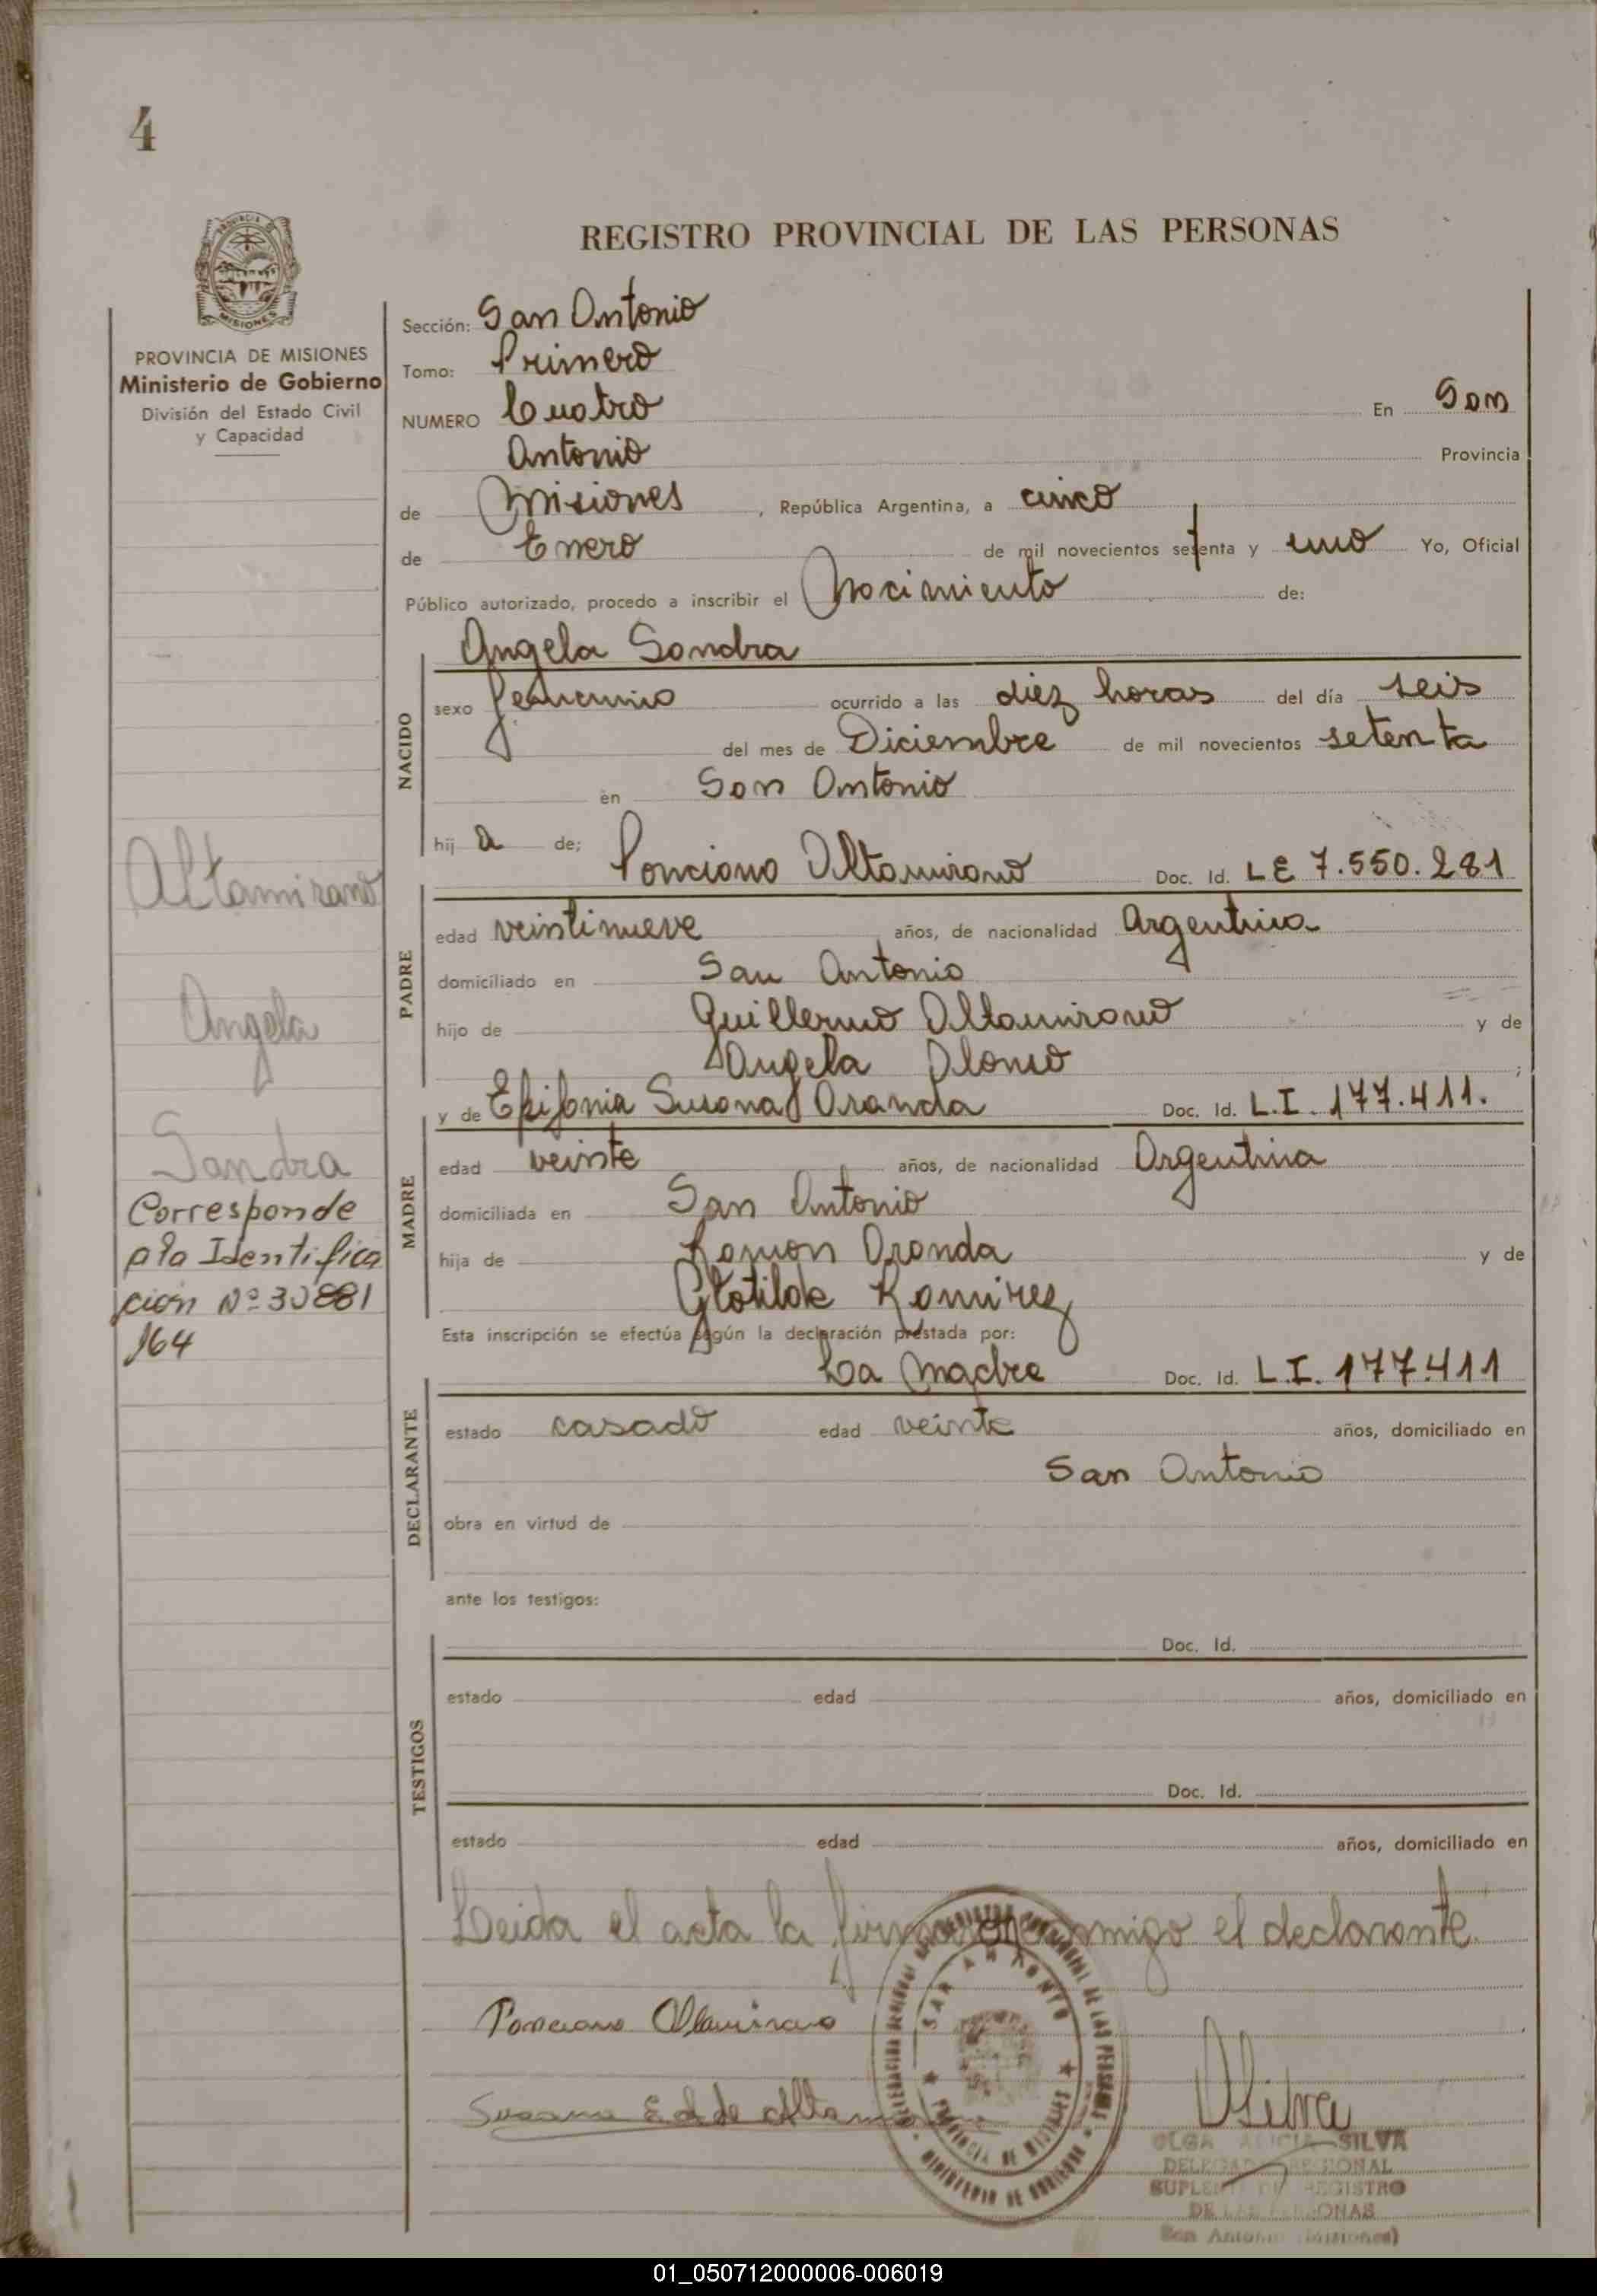 4
REGISTRO PROVINCIAL DE LAS PERSONAS
PROVINCIA DE MISIONES
Ministerio de Gobierno
División del Estado Civil
y Capacidad
Sección: San Antonio
Tomo: Primero
NUMERO Cuatro En San
Antonio Provincia
de Misiones, República Argentina, a cinco
de Enero de mil novecientos setenta y uno Yo, Oficial
Público autorizado, procedo a inscribir el Nacimiento de:
Angela Sandra
NACIDO
sexo femenino ocurrido a las diez horas del día seis
del mes de Diciembre de mil novecientos setenta
en San Antonio
hij a de; Ponciano Altamirano Doc. Id. LE 7.550.281
PADRE
edad veintinueve años, de nacionalidad Argentina
domiciliado en San Antonio
hijo de Guillermo Altamirano y de
Angela Alonso;
y de Epifania Susana Aranda Doc. Id. L.I. 177.411.
MADRE
edad veinte años, de nacionalidad Argentina
domiciliada en San Antonio
hija de Ramon Aranda y de
Clotilde Ramirez
Esta inscripción se efectúa según la declaración prestada por:
La Madre Doc. Id. L.I. 177.411
DECLARANTE
estado casado edad veinte años, domiciliado en
San Antonio
obra en virtud de
ante los testigos:
Doc. Id.
TESTIGOS
estado edad años, domiciliado en
Doc. Id.
estado edad años, domiciliado en
Leida el acta la firma conmigo el declarante.
Ponciano Altamirano
Susana E. A. de Altamirano
SAN ANTONIO
PROVINCIA DE MISIONES
MINISTERIO DE GOBIERNO
OSilva
OLGA ALICIA SILVA
DELEGADA REGIONAL
SUPLENTE DEL REGISTRO
DE LAS PERSONAS
San Antonio (Misiones)
Altamirano
Angela
Sandra
Corresponde
a la Identifica
cion Nº 30881
164
01_050712000006-006019